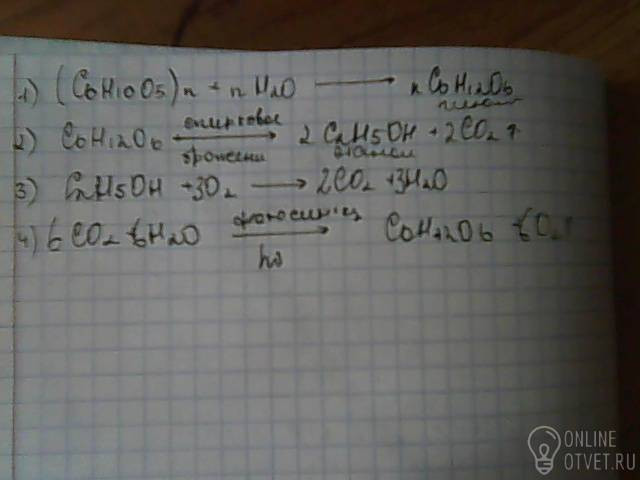 1) (C6H10O5)n + n H2O → n C6H12O6
глюкоза
2) C6H12O6 спиртовое брожение 2 C2H5OH + 2CO2 ↑
этанол
3) C2H5OH + 3O2 → 2CO2 + 3H2O
4) 6CO2 + 6H2O фотосинтез hν → C6H12O6 + 6O2↑
ONLINE
OTVET.RU